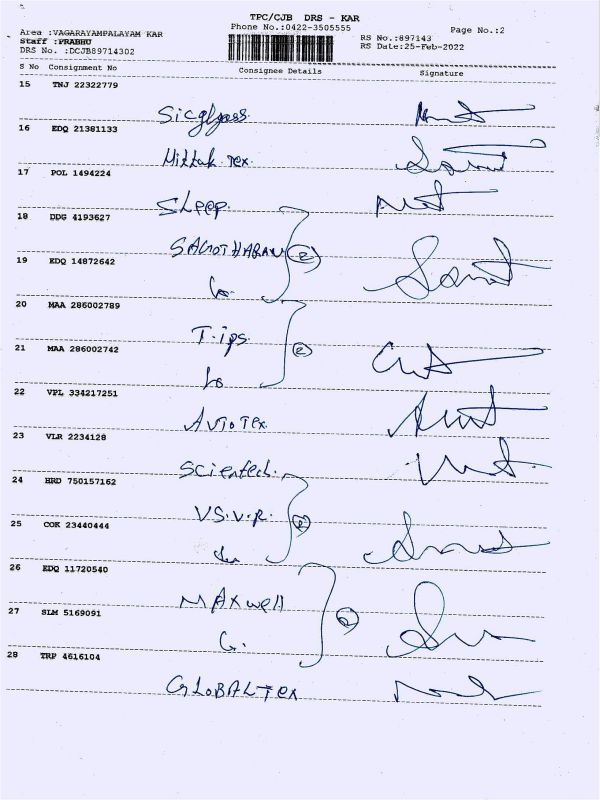 TPC/CJB DRS - KAR
Phone No.:0422-3505555
Page No.:2
Area :VAGARAYAMPALAYAM KAR
Staff :PRABHU
DRS No. :DCJB89714302
RS No.:897143
RS Date:25-Feb-2022
S No Consignment No Consignee Details Signature
15 TNJ 22322779
16 EDQ 21381133
Mittal Tex.
17 POL 1494224
Sleep.
18 DDG 4193627
SAGOTHARAN (2)
19 EDQ 14872642
20 MAA 286002789
T.ips (2)
21 MAA 286002742
22 VPL 334217251
AUTOTEX.
23 VLR 2234128
Scientech.
24 HRD 750157162
V.S.V.R. (2)
25 COK 23440444
26 EDQ 11720540
MAXwell (2)
27 SLM 5169091
28 TRP 4616104
GLOBALTEX